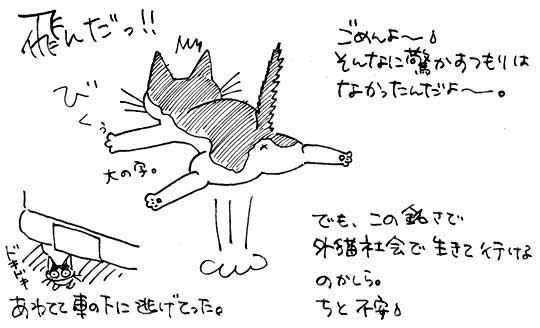 飛んだっ!!
びくぅ
大の字。
ごめんよ〜
そんなに驚かすつもりは
なかったんだよ〜。
でも、この鈍さで
外猫社会で生きて行ける
のかしら。
ちと不安
シャキャキ
あわてて車の下に逃げてった。